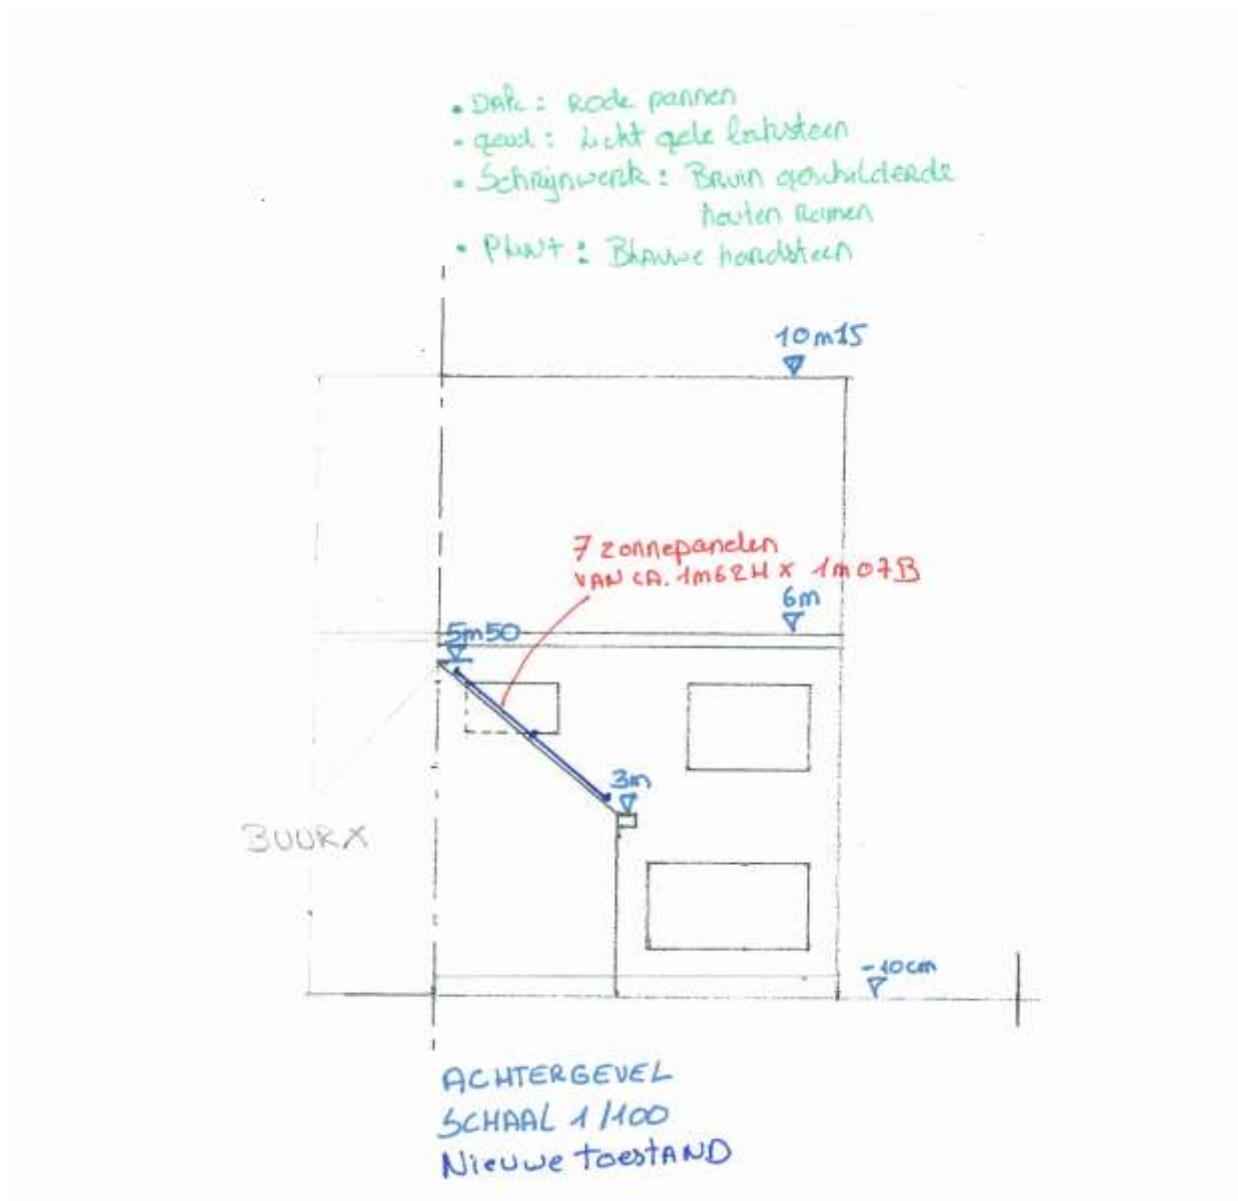 • DAk : Rode pannen
- gevel : Licht gele baksteen
• Schrijnwerk : Bruin geschilderde
houten Ramen
• Plint : Blauwe hardsteen
10m15
7 zonnepanelen
VAN CA. 1m62H x 1m07B
6m
5m50
3m
BUUR X
-10cm
ACHTERGEVEL
SCHAAL 1/100
Nieuwe toestAND